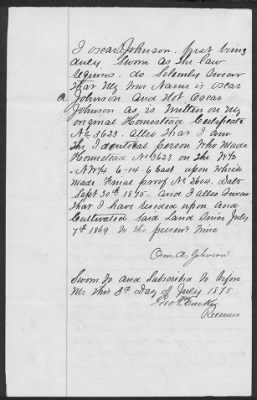 I oscar Johnson. first being
duly Sworn as the law
requires. do Solemly Swear
that my true Name is oscar
a Johnson and Not Oscar
Johnson as is written on my
original Homestead Certificate
No 3623. also that I am
the Identical person who made
Homestead No 3623 on the W½
NW¼ 6-14-6 East upon which
made Final proof No 2604. Dat
Sept 30th 1875. and I also Swear
that I have resided upon and
Cultivated said Land Since July
7th 1869 to the present time
A. Johnson
Sworn to and Subscribed to before
me this 8th Day of July 1875
Receiver